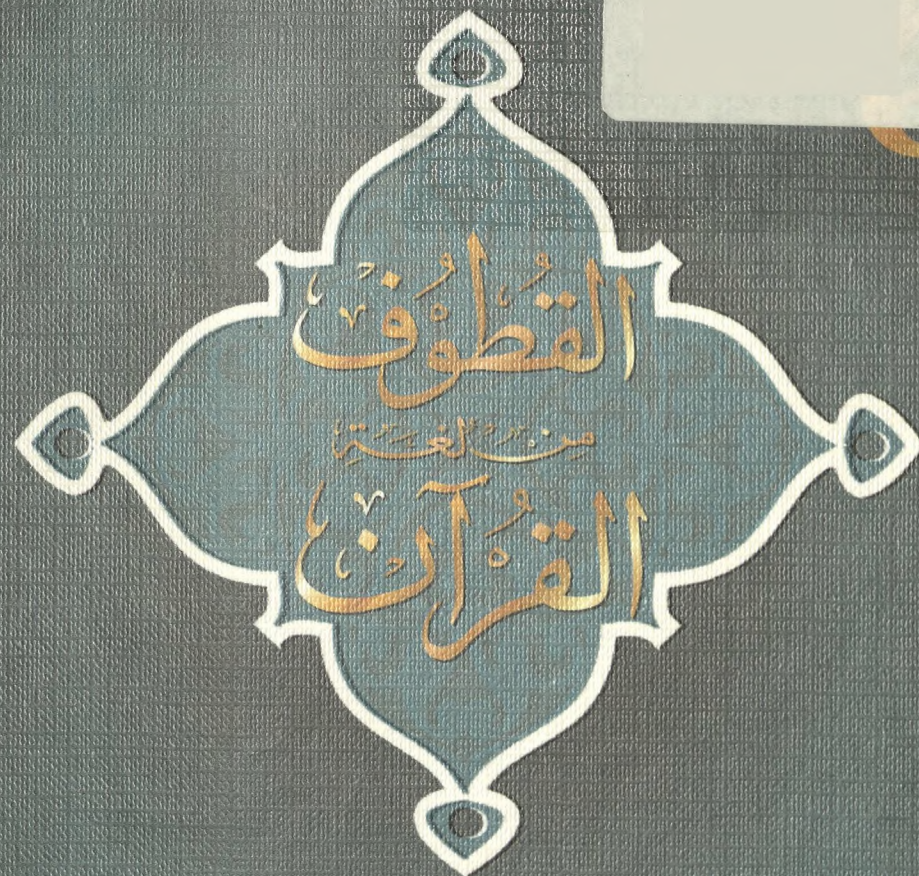 القُطُوْف
مِن لُغَةِ
القُرْآن